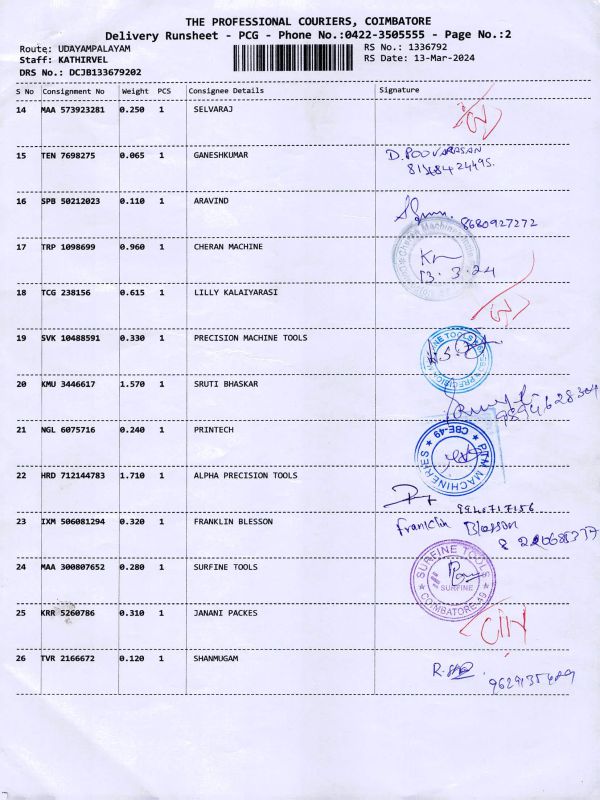 THE PROFESSIONAL COURIERS, COIMBATORE
Delivery Runsheet - PCG - Phone No.:0422-3505555 - Page No.:2
Route: UDAYAMPALAYAM RS No.: 1336792
Staff: KATHIRVEL RS Date: 13-Mar-2024
DRS No.: DCJB133679202
S No Consignment No Weight PCS Consignee Details Signature
14 MAA 573923281 0.250 1 SELVARAJ
15 TEN 7698275 0.065 1 GANESHKUMAR D. POOVARASAN
16 SPB 50212023 0.110 1 ARAVIND
8680927272
17 TRP 1098699 0.960 1 CHERAN MACHINE
13.3.24
18 TCG 238156 0.615 1 LILLY KALAIYARASI
19 SVK 10488591 0.330 1 PRECISION MACHINE TOOLS
20 KMU 3446617 1.570 1 SRUTI BHASKAR
9894628304
21 NGL 6075716 0.240 1 PRINTECH CBE-49
MACHINERIES
22 HRD 712144783 1.710 1 ALPHA PRECISION TOOLS
23 IXM 506081294 0.320 1 FRANKLIN BLESSON Franklin Blesson
24 MAA 300807652 0.280 1 SURFINE TOOLS SURFINE TOOLS
SURFINE
COIMBATORE-49
25 KRR 5260786 0.310 1 JANANI PACKES
26 TVR 2166672 0.120 1 SHANMUGAM